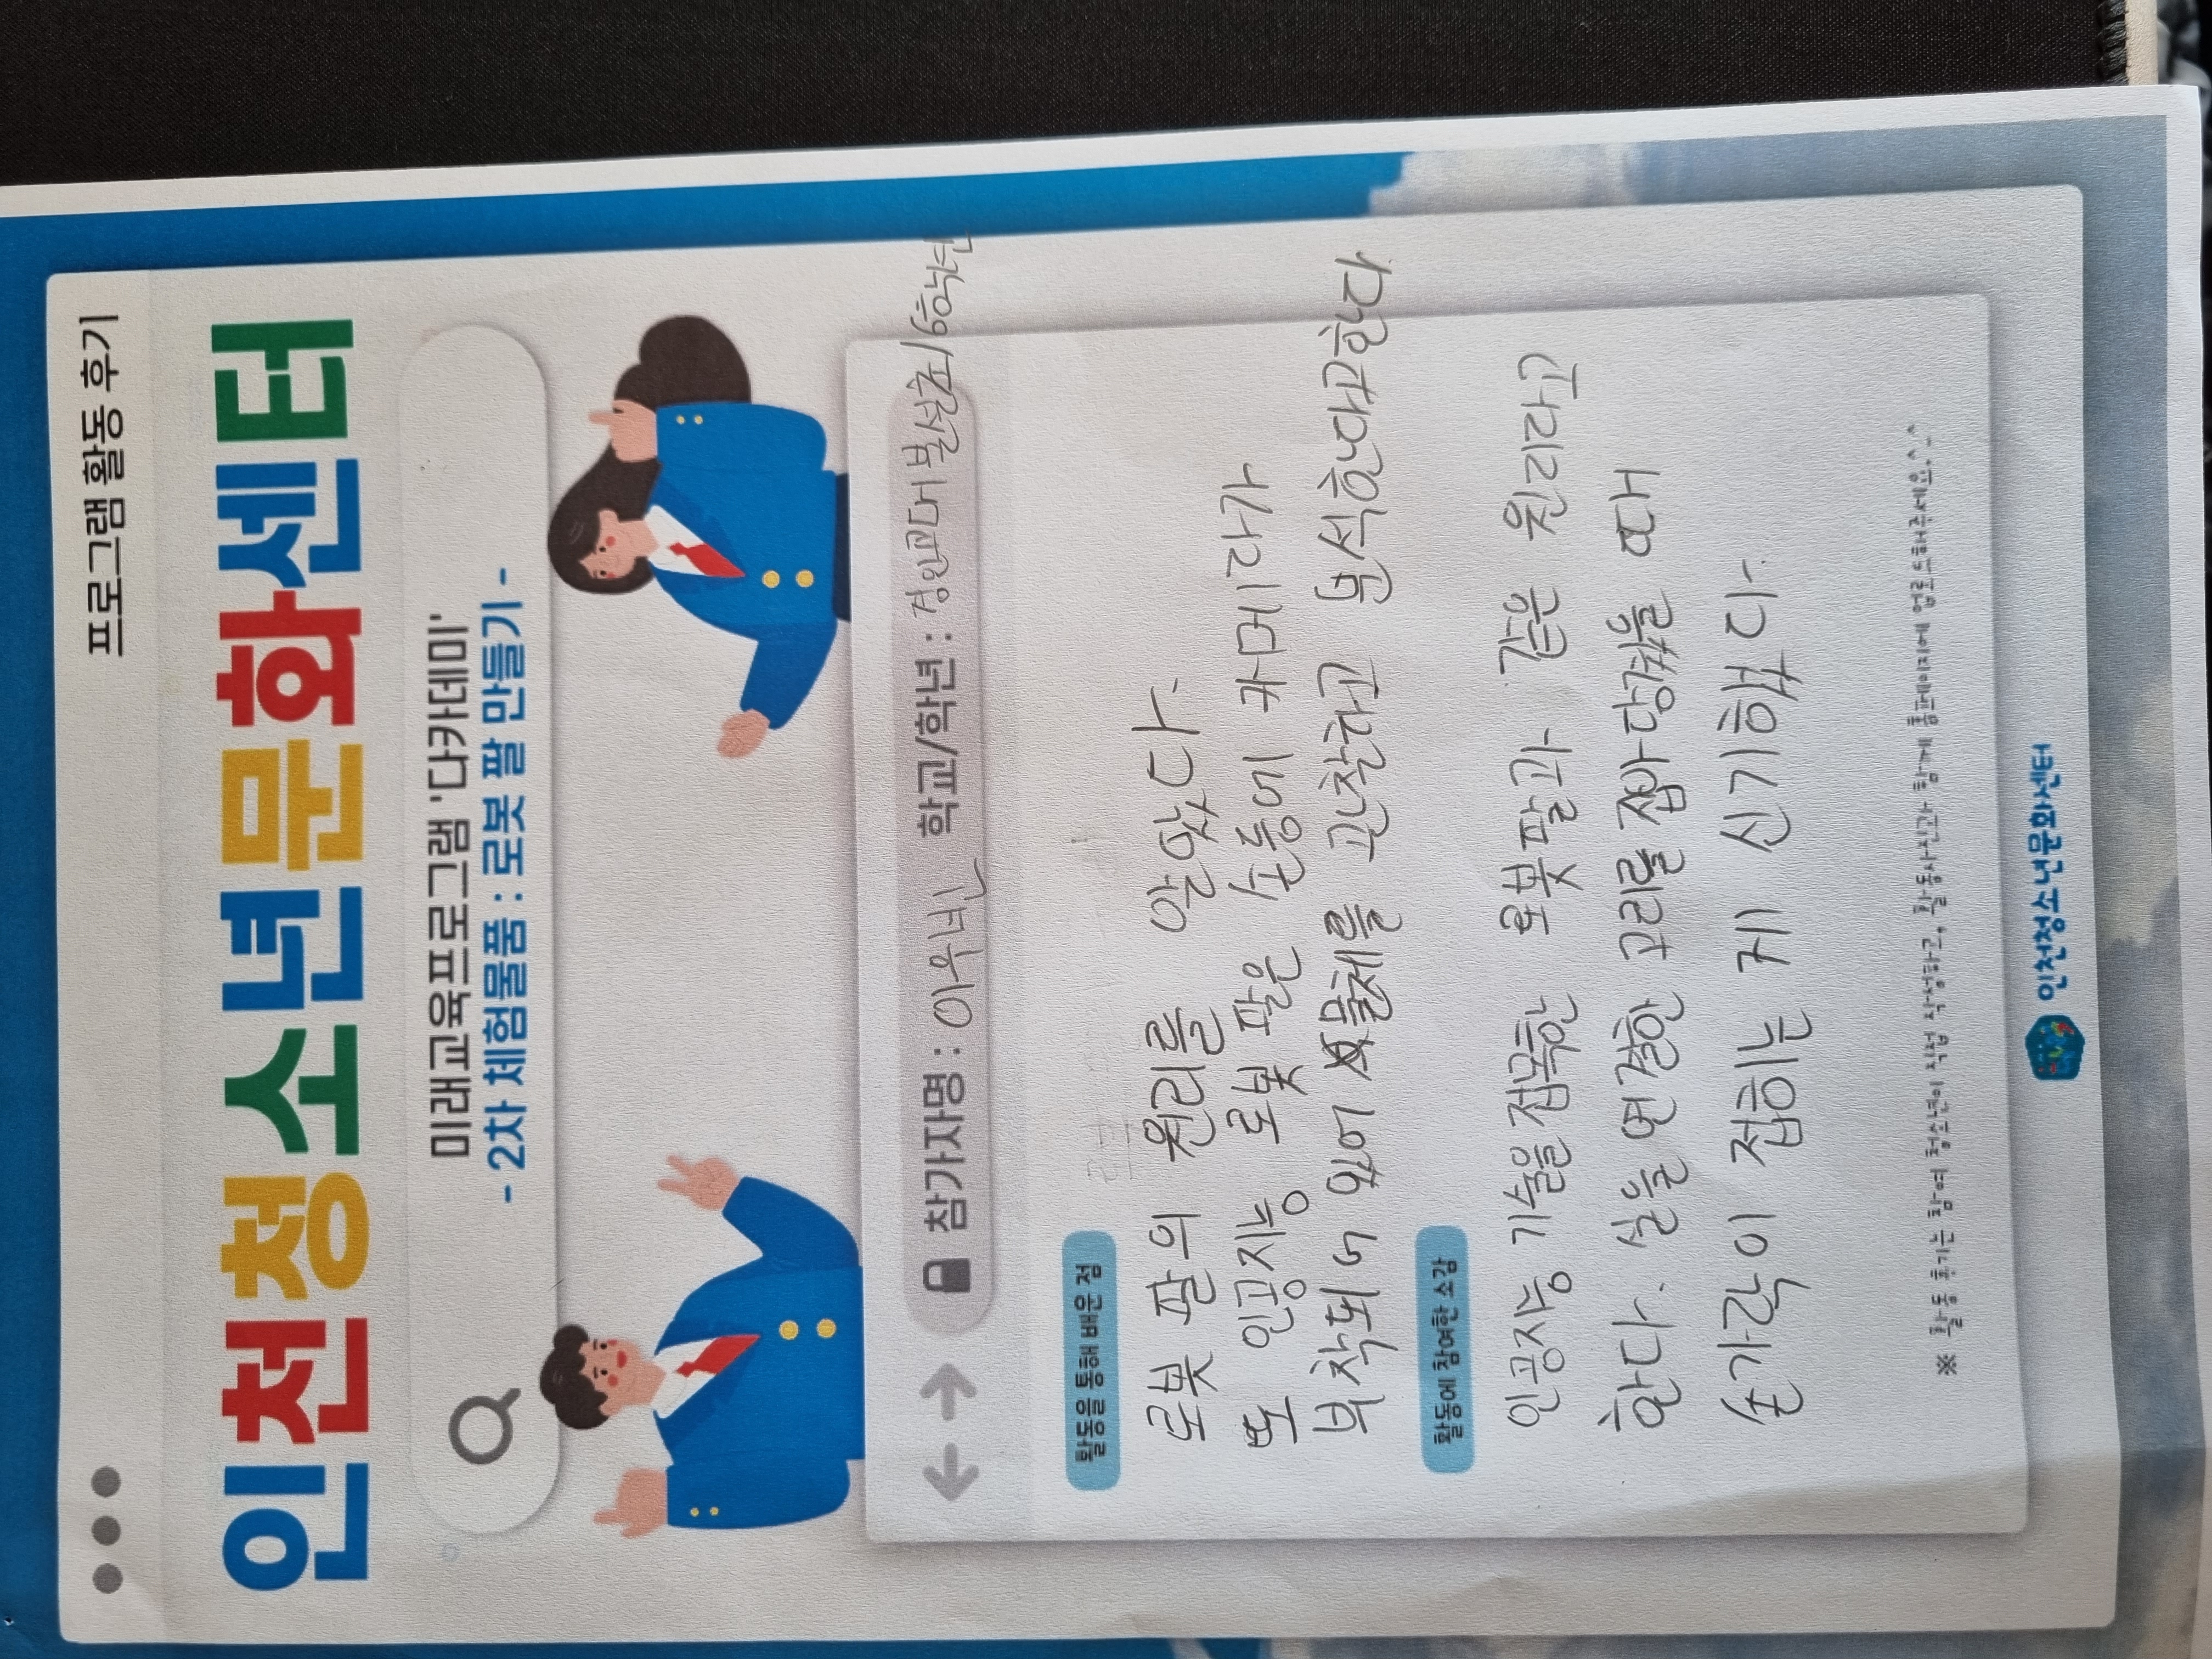 프로그램 활동 후기
인천청소년문화센터
미래교육프로그램 '다카데미'
- 2차 체험물품 : 로봇 팔 만들기 -
참가자명 : 이우빈 학교/학년 : 경인교대부설초/6학년
활동을 통해 배운 점
로봇 팔의 원리를 알았다.
또 인공지능 로봇 팔은 손등에 카메라가
부착되어 있어 물체를 관찰하고 분석한다고한다
활동에 참여한 소감
인공지능 기술을 접목한 로봇팔과 같은 원리라고
한다. 실을 연결한 고리를 잡아 당겼을 때
손가락이 접히는 게 신기했다.
※ 활동 후기는 참여 청소년이 직접 작성하고, 활동사진과 함께 홈페이지에 업로드해주세요^^
인천청소년문화센터